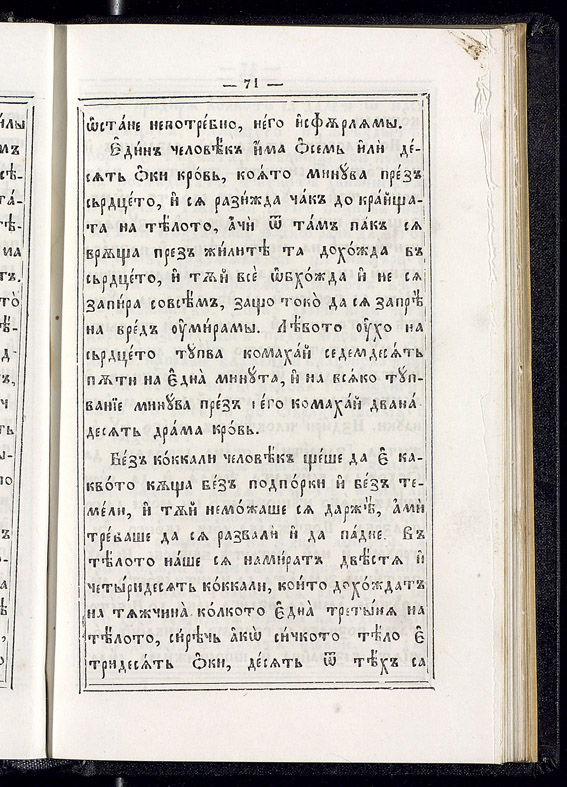 — 71 —
ѡ҆ста́не непотре́бно, не́го и҆сфѫ́рлѧмы.
Є҆ди́нъ человѣ́къ и҆́ма ѻ҆́семь и҆лѝ де-
сѧ́ть ѻ҆́ки кро́вь, коѧ́то мину́ва пре́зъ
сьрдце́то, и҆ сѧ разижда ча́къ до кра́йща-
та на тѣ́лото, а҆́чи ѿ та́мъ па́къ сѧ
врѫ́ща презъ жи́литѣ та дохо́жда въ
сьрдце́то, и҆ тѫ́й всѐ ѡ҆бхо́жда и҆ не сѧ
запи́ра совсѣ́мъ, защо токо̀ да сѧ запре́ѣ
на вре́дъ ᲂу҆ми́рамы. Лѣ́вото ᲂу҆́хо на
сьрдце́то ту́пва комаха́й седемдесѧ́ть
пѫ́ти на є҆дна̀ мину́та, и҆ на всѧ́ко ту́п-
ванїе мину́ва пре́зъ него комаха́й двана́
десѧть дра́ма кро́вь.
Бе́зъ ко́ккали человѣ́къ ще́ше да є҆̀ ка-
кво́то кѫ́ща бе́зъ подпо́рки и҆ бе́зъ те-
ме́ли, и҆ тѫ́й немо́жаше сѧ даржѣ̀, а҆мѝ
тре́ваше да сѧ развалѝ и҆ да па́дне. Въ
тѣ́лото на́ше сѧ нами́ратъ две́стѧ и҆
четы́ридесѧть ко́ккали, кои́то дохо́ждатъ
на тѧжчина̀ ко́лкото є҆дна̀ трети́нѧ на
тѣ́лото, си́рѣчь а҆́кѡ си́чкото тѣ́ло є҆̀
тридесѧ́ть ѻ҆́ки, де́сѧть ѿ тѣ́хъ са